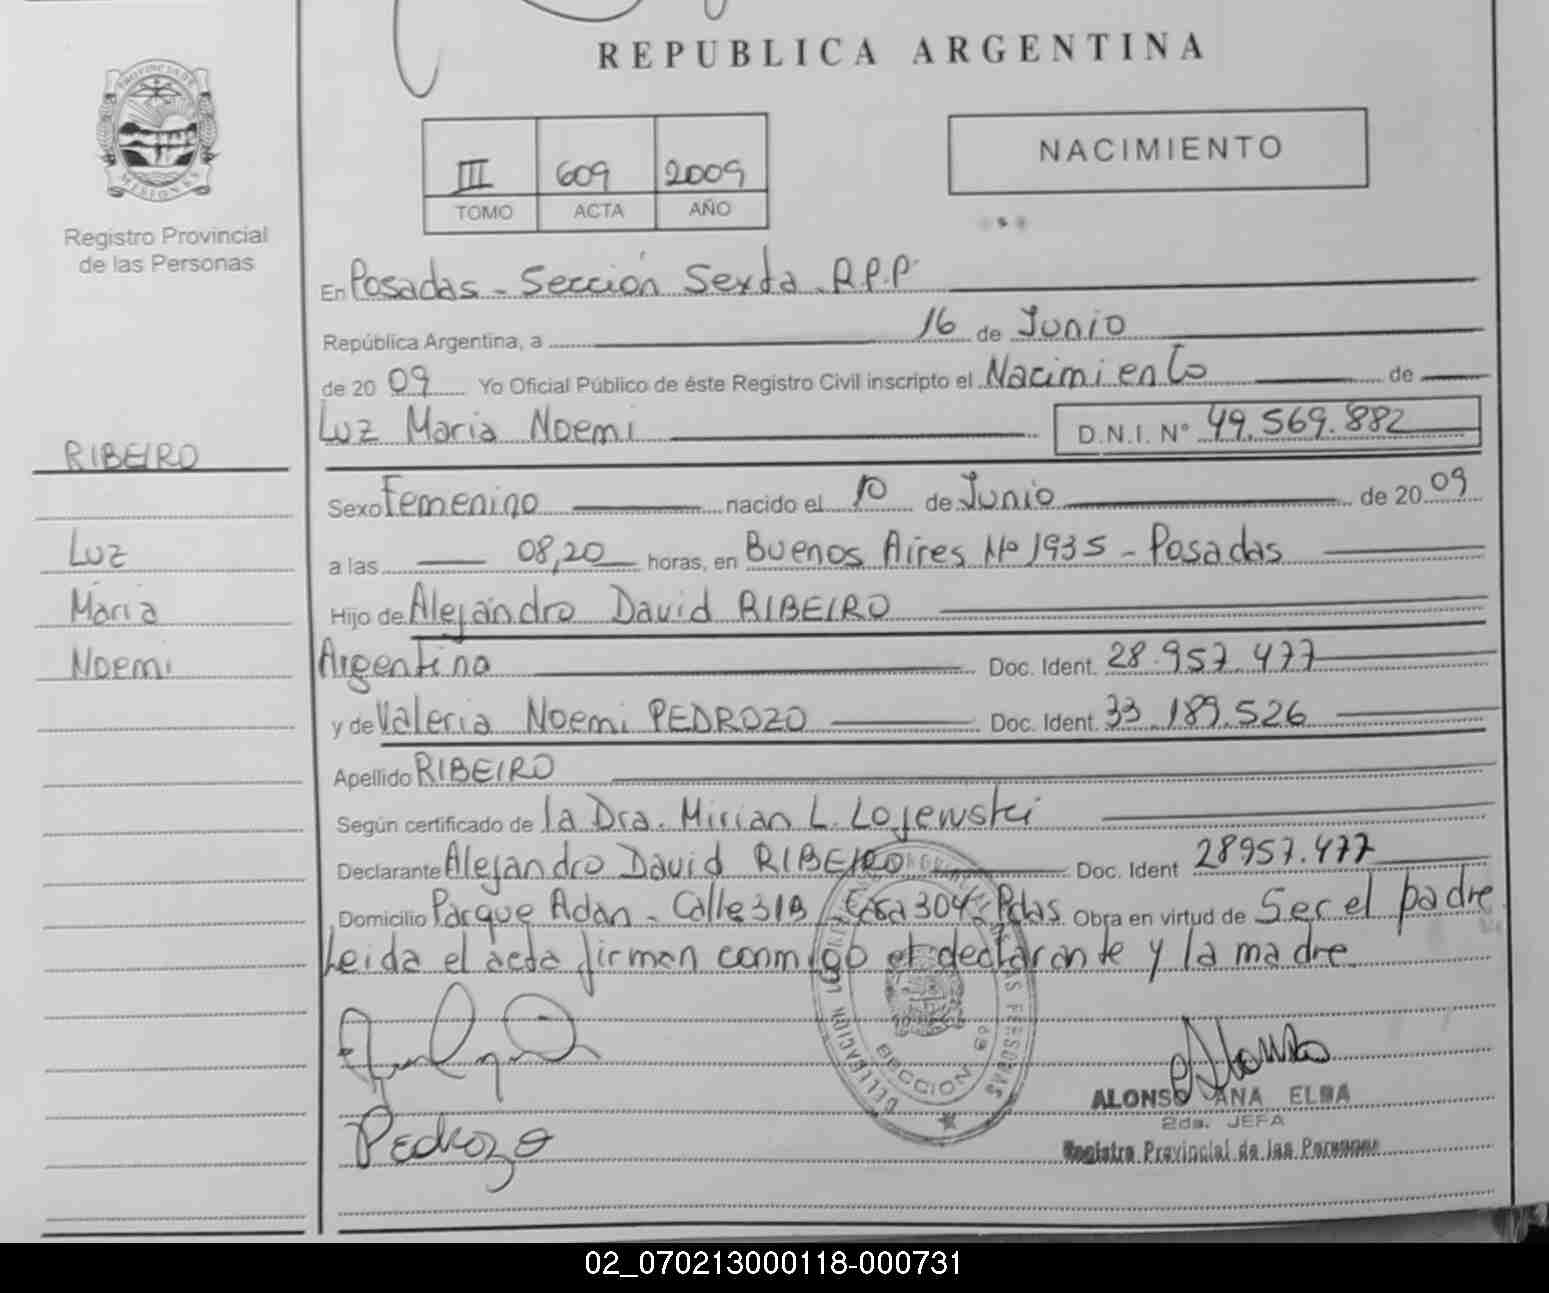 REPUBLICA ARGENTINA
PROVINCIA DE
MISIONES
Registro Provincial
de las Personas
III 609 2009
TOMO ACTA AÑO
NACIMIENTO
En Posadas - Sección Sexta R.P.P
República Argentina, a 16 de Junio
de 2009 Yo Oficial Público de éste Registro Civil inscripto el Nacimiento de
Luz Maria Noemi D.N.I. N° 49.569.882
RIBEIRO
Sexo Femenino nacido el 10 de Junio de 2009
Luz
a las 08,20 horas, en Buenos Aires Nº 1935 - Posadas
Maria
Hijo de Alejandro David RIBEIRO
Noemi
Argentino Doc. Ident. 28.957.477
y de Valeria Noemi PEDROZO Doc. Ident. 33.189.526
Apellido RIBEIRO
Según certificado de la Dra. Mirian L. Lojewski
Declarante Alejandro David RIBEIRO Doc. Ident 28957.477
Domicilio Parque Adan - Calle 31B Casa 304 - Pdas Obra en virtud de Ser el padre
Leida el acta firman conmigo el declarante y la madre
DELEGACION
DE LAS PERSONAS
SECCION 6ª
Pedrozo
ALONSO ANA ELBA
2da. JEFA
Registro Provincial de las Personas
02_070213000118-000731